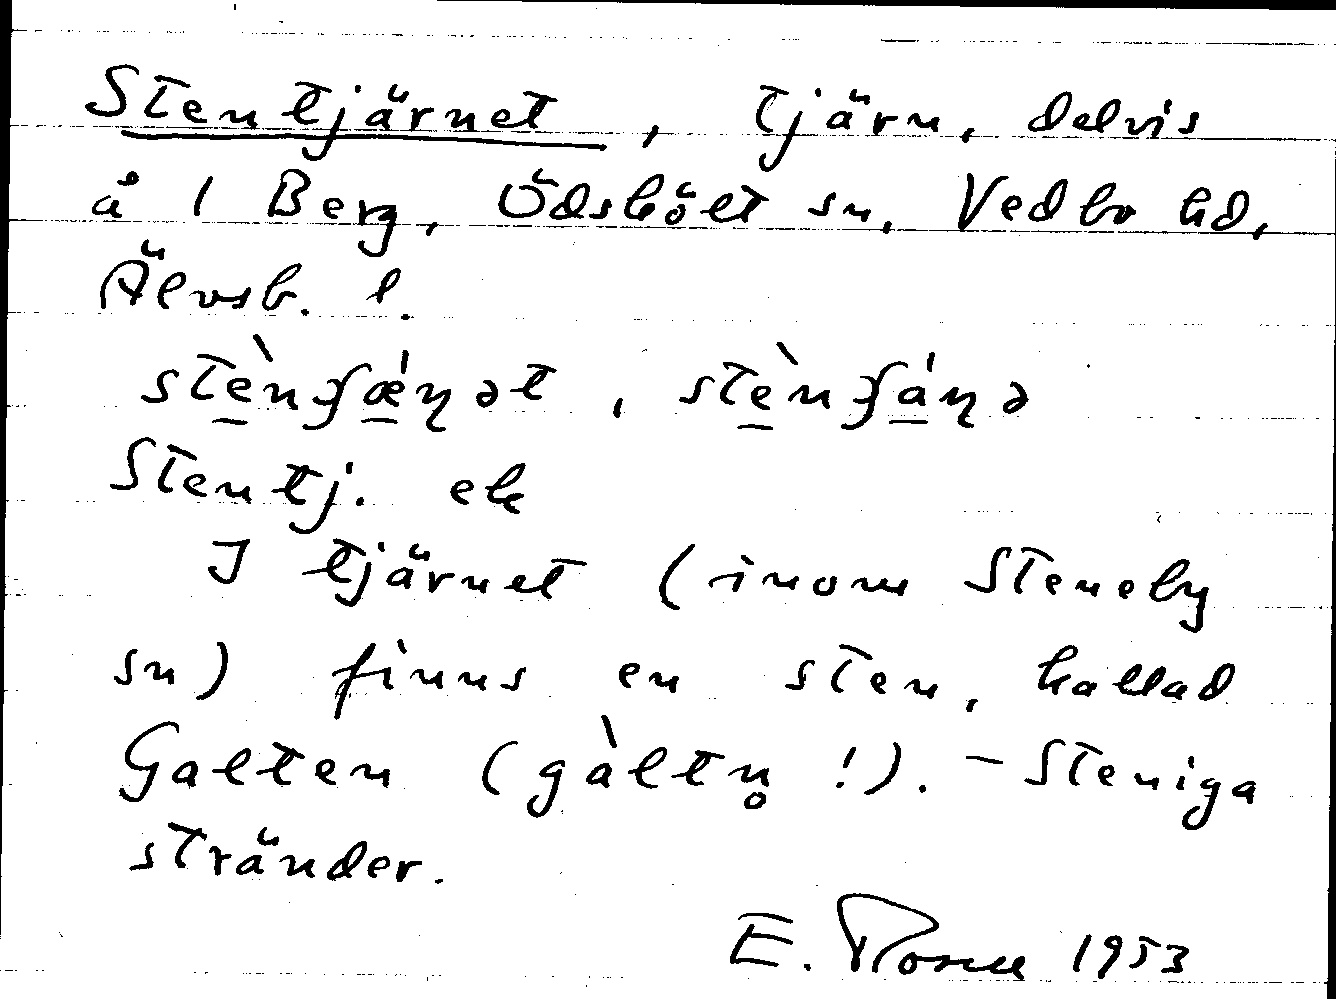 Stentjärnet, tjärn, delvis
å 1 Berg, Ödskölt sn, Vedbo hd,
Älvsb. l.
Stentj. ek
I tjärnet (inom Steneby
sn) finns en sten, kallad
Galten (gàltn̥ !). – Steniga
stränder.
E. 1953